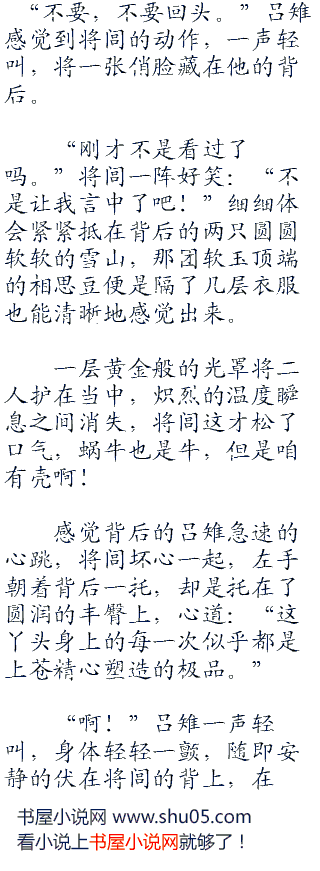 “不要，不要回头。”吕雉
感觉到将闾的动作，一声轻
叫，将一张俏脸藏在他的背
后。
“刚才不是看过了
吗。”将闾一阵好笑：“不
是让我言中了吧！”细细体
会紧紧抵在背后的两只圆圆
软软的雪山，那团软玉顶端
的相思豆便是隔了几层衣服
也能清晰地感觉出来。
一层黄金般的光罩将二
人护在当中，炽烈的温度瞬
息之间消失，将闾这才松了
口气，蜗牛也是牛，但是咱
有壳啊！
感觉背后的吕雉急速的
心跳，将闾坏心一起，左手
朝着背后一托，却是托在了
圆润的丰臀上，心道：“这
丫头身上的每一次似乎都是
上苍精心塑造的极品。”
“啊！”吕雉一声轻
叫，身体轻轻一颤，随即安
静的伏在将闾的背上，在
书屋小说网 www.shu05.com
看小说上书屋小说网就够了！